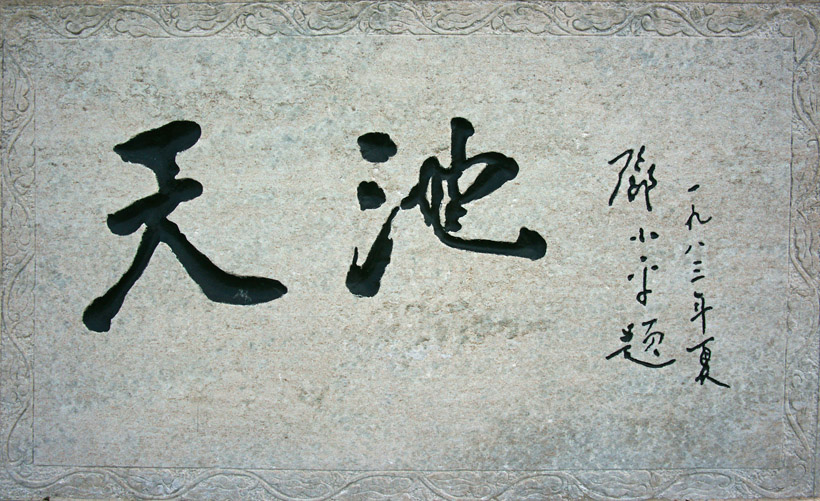 天池
鄧小平题
一九八三年夏